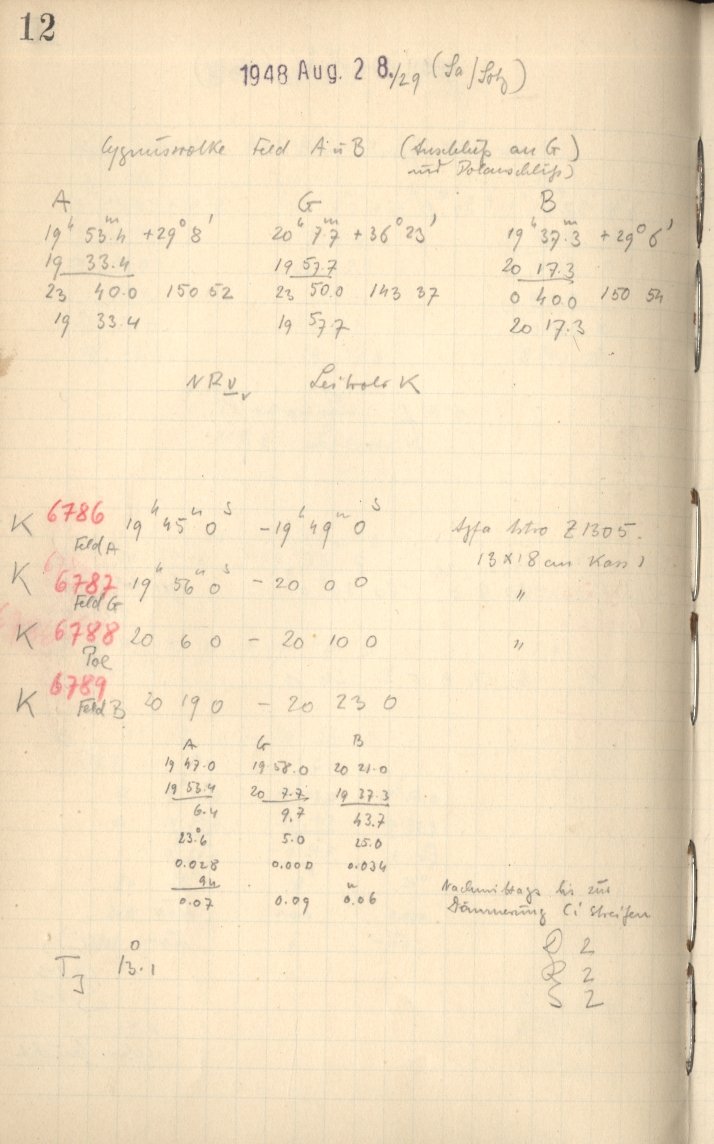 12
1948 Aug. 28./29 (Sa/Sotg)
Cygnuswolke Feld A u B (Anschluß an G)
und Polanschluß)
A G B
19ʰ 53ᵐ.4 +29° 8' 20ʰ 7ᵐ.7 +36° 23' 19ʰ 37ᵐ.3 +29° 6'
19 33.4 19 57.7 20 17.3
23 40.0 150 52 23 50.0 143 37 0 40.0 150 54
19 33.4 19 57.7 20 17.3
Leitrohr K
K 6786 19ʰ 45ᵐ 0ˢ - 19ʰ 49ᵐ 0ˢ Agfa Astro Z 1305.
Feld A 13 x 18 cm Kass)
K 6787 19ʰ 56ᵐ 0ˢ - 20 0 0 "
Feld G
K 6788 20 6 0 - 20 10 0 "
Pol
K 6789 20 19 0 - 20 23 0
Feld B
A G B
19 47.0 19 58.0 20 21.0
19 53.4 20 7.7 19 37.3
6.4 9.7 43.7
23.6 5.0 25.0
0.028 0.000 0.034
0.07 0.09 0.06
Nachmittags bis zur
Dämmerung Ci Streifen
2
T_J 13.1
2
S 2